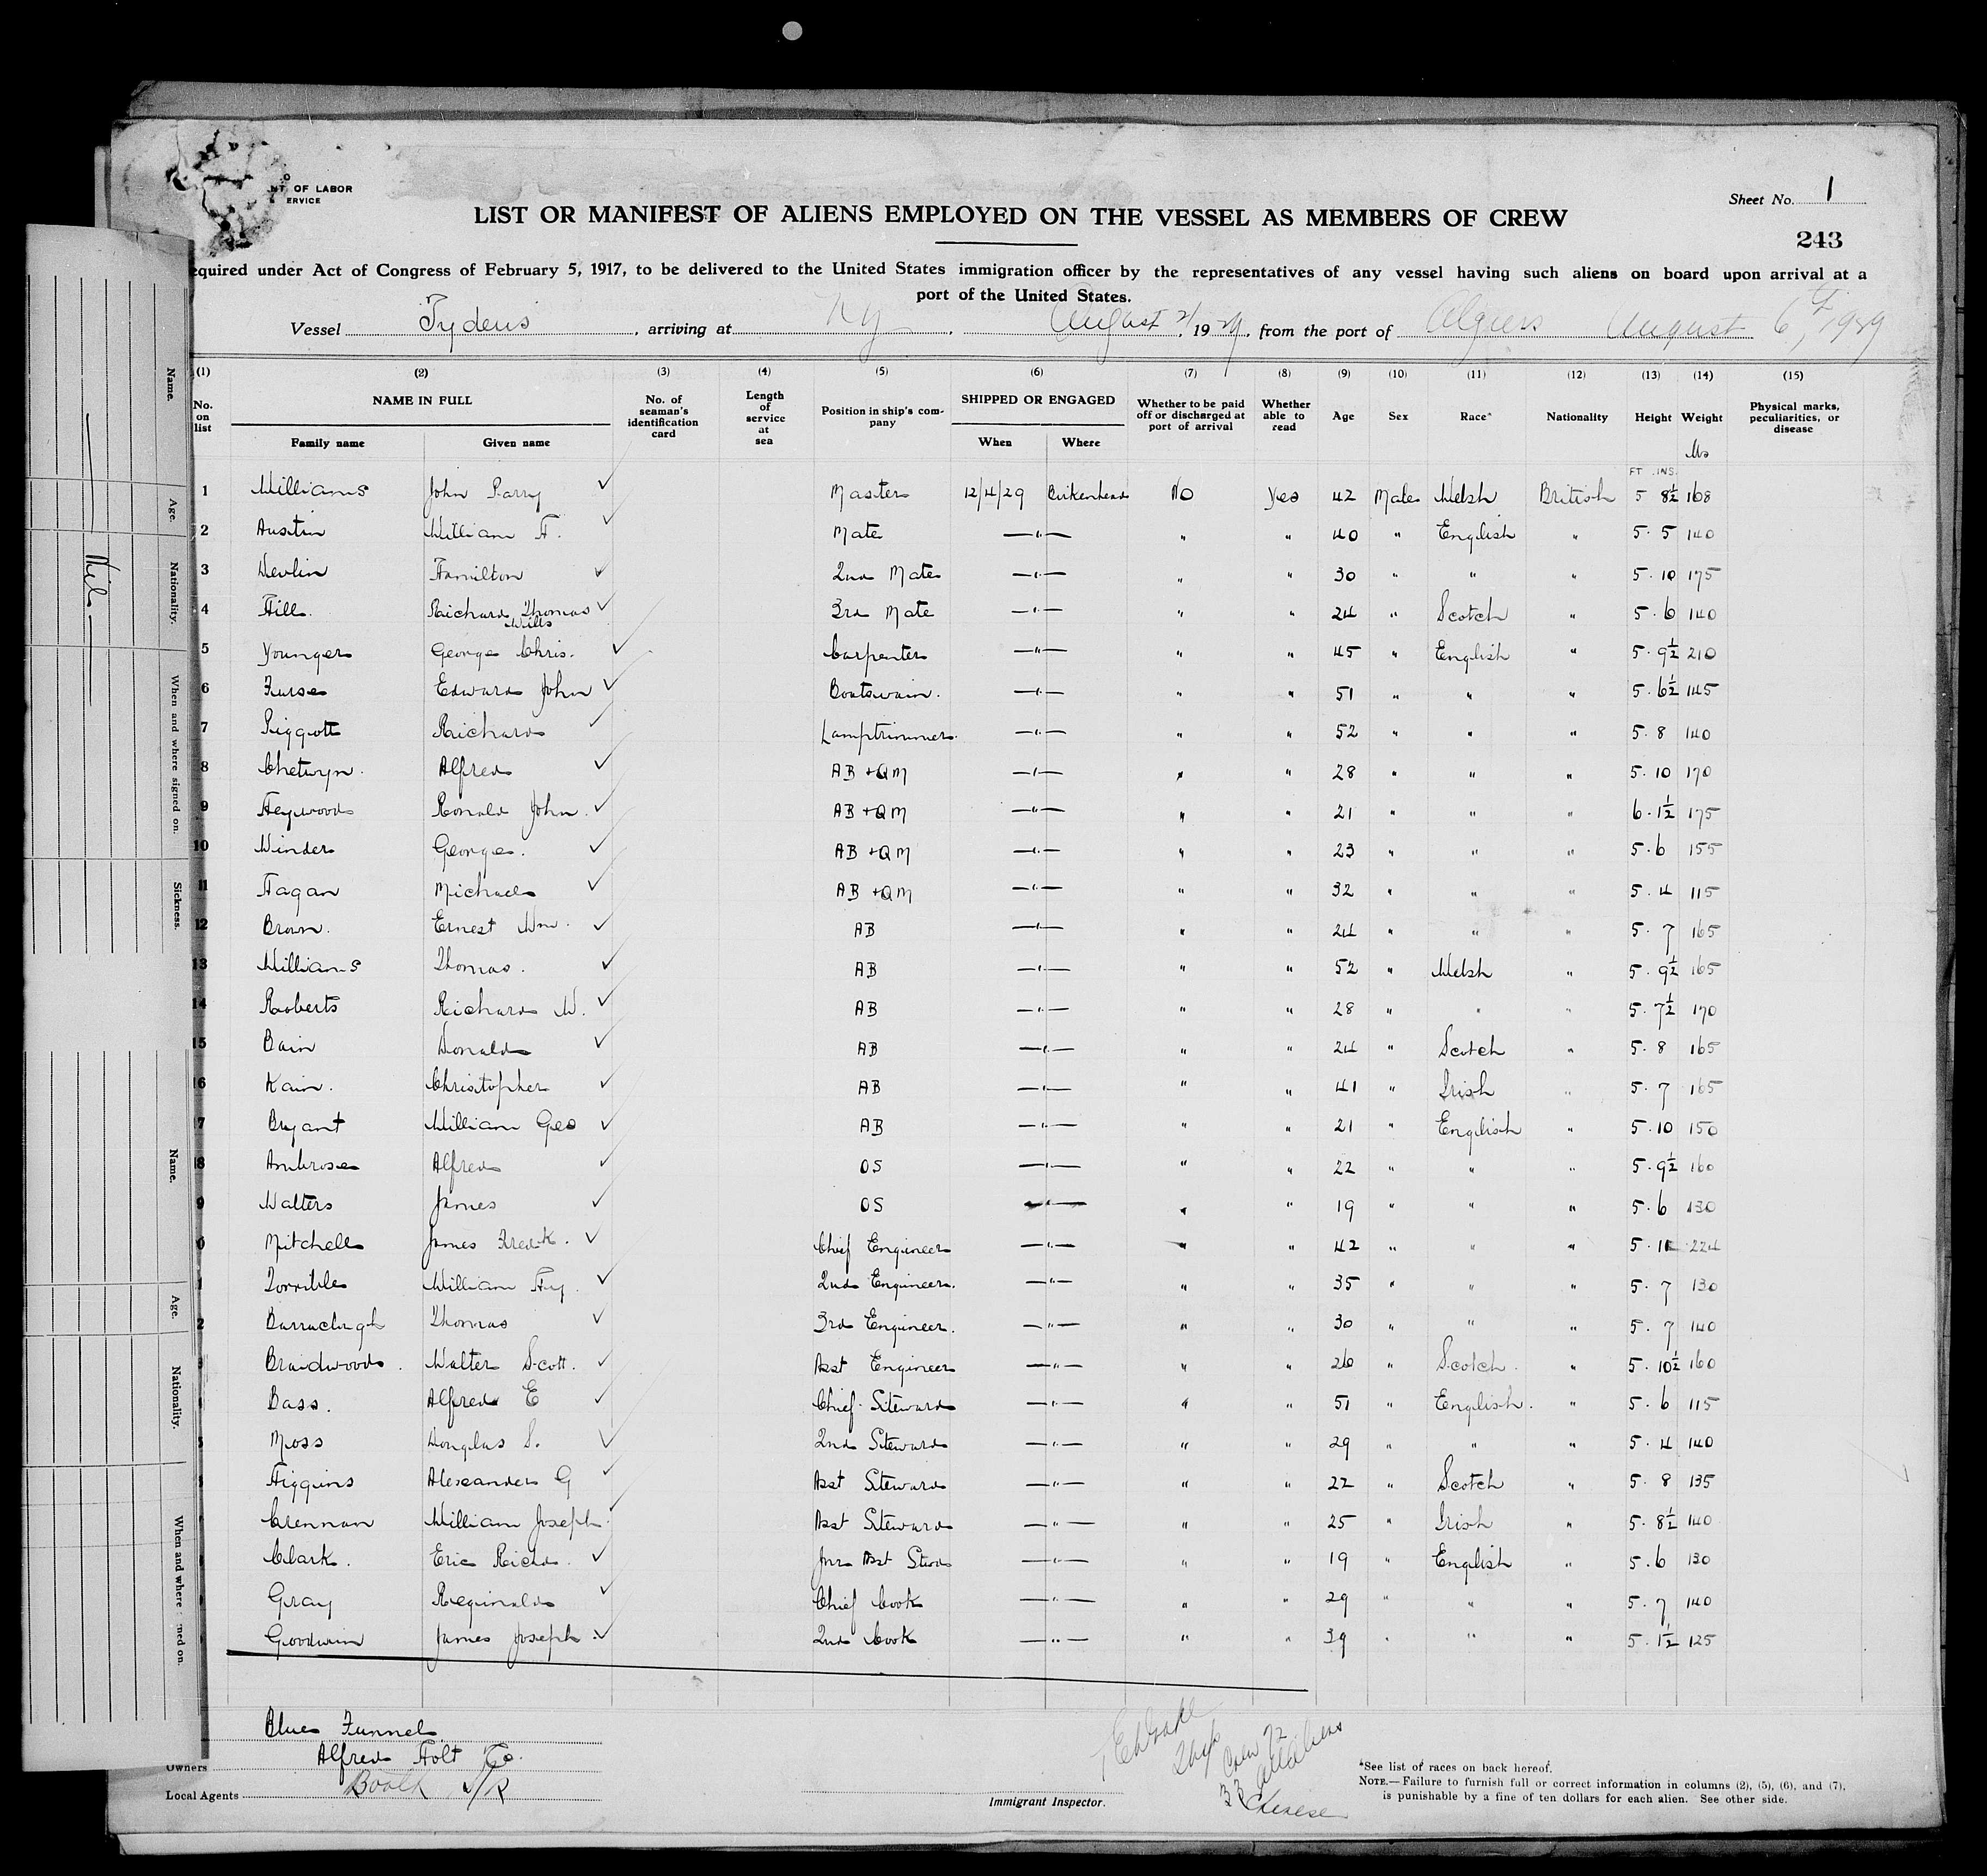 NT OF LABOR
ERVICE
Sheet No. 1
LIST OR MANIFEST OF ALIENS EMPLOYED ON THE VESSEL AS MEMBERS OF CREW
243
equired under Act of Congress of February 5, 1917, to be delivered to the United States immigration officer by the representatives of any vessel having such aliens on board upon arrival at a
port of the United States.
Vessel Tydeus, arriving at Ny, August 21, 1929, from the port of Algiers August 6th, 1929
(1) (2) (3) (4) (5) (6) (7) (8) (9) (10) (11) (12) (13) (14) (15)
No. on list NAME IN FULL Family name Given name No. of seaman's identification card Length of service at sea Position in ship's company SHIPPED OR ENGAGED When Where Whether to be paid off or discharged at port of arrival Whether able to read Age Sex Race* Nationality Height Weight Physical marks, peculiarities, or disease
lbs
FT. INS.
1 Williams John Parry ✓ Master 12/4/29 Birkenhead No Yes 42 Male Welsh British 5 8½ 168
2 Austin William H. ✓ Mate —"— " " 40 " English " 5.5 140
3 Devlin Hamilton ✓ 2nd Mate —"— " " 30 " " " 5.10 175
4 Hill. Richard Thomas Wills ✓ 3rd Mate —"— " " 24 " Scotch " 5.6 140
5 Younger George Chris. ✓ Carpenter —"— " " 45 " English " 5.9½ 210
6 Furse Edward John ✓ Boatswain. —"— " " 51 " " " 5.6½ 145
7 Piggott Richard ✓ Lamptrimmer. —"— " " 52 " " " 5.8 140
8 Chetwyn. Alfred ✓ AB + QM —"— " " 28 " " " 5.10 170
9 Heywood Ronald John. ✓ AB + QM —"— " " 21 " " " 6.1½ 175
10 Winder George. ✓ AB + QM —"— " " 23 " " " 5.6 155
11 Hagan Michael ✓ AB + QM —"— " " 32 " " " 5.4 115
12 Brown. Ernest Wm. ✓ AB —"— " " 24 " " " 5.7 165
13 Williams Thomas. ✓ AB —"— " " 52 " Welsh " 5.9½ 165
14 Roberts Richard W. ✓ AB —"— " " 28 " " " 5.7½ 170
15 Bain Donald ✓ AB —"— " " 24 " Scotch " 5.8 165
16 Kain. Christopher ✓ AB —"— " " 41 " Irish " 5.7 165
7 Bryant William Geo ✓ AB —"— " " 21 " English " 5.10 150
18 Ambrose Alfred ✓ OS —"— " " 22 " " " 5.9½ 160
9 Walters James ✓ OS —"— " " 19 " " " 5.6 130
0 Mitchell James Fredk. ✓ Chief Engineer —"— " " 42 " " " 5.11 224
1 Torrible William Hy. ✓ 2nd Engineer. —"— " " 35 " " " 5.7 130
2 Barraclugh Thomas ✓ 3rd Engineer. —"— " " 30 " " " 5.7 140
3 Braidwood. Walter Scott. ✓ Asst Engineer —"— " " 26 " Scotch. " 5.10½ 160
Bass. Alfred E ✓ Chief Steward —"— " " 51 " English. " 5.6 115
Moss Douglas S. ✓ 2nd Steward —"— " " 29 " " " 5.4 140
Higgins Alexander G ✓ Asst Steward —"— " " 22 " Scotch " 5 8 135
Crennan William Joseph. ✓ Asst Steward —"— " " 25 " Irish " 5.8½ 140
Clark. Eric Richd. ✓ Jnr Asst Stwd —"— " " 19 " English " 5.6 130
Gray Reginald ✓ Chief Cook —"— " " 29 " " " 5.7 140
Goodwin James Joseph. ✓ 2nd Cook —"— " " 39 " " " 5.1½ 125
Blue Funnel
Owners Alfred Holt & Co.
Local Agents Booth S/S
Immigrant Inspector.
Crew 72
all aliens
33 Chinese
*See list of races on back hereof.
NOTE.—Failure to furnish full or correct information in columns (2), (5), (6), and (7),
is punishable by a fine of ten dollars for each alien. See other side.
Name.
Age.
Nationality.
When and where signed on.
Sickness.
Name.
Age.
Nationality.
When and where ned on.